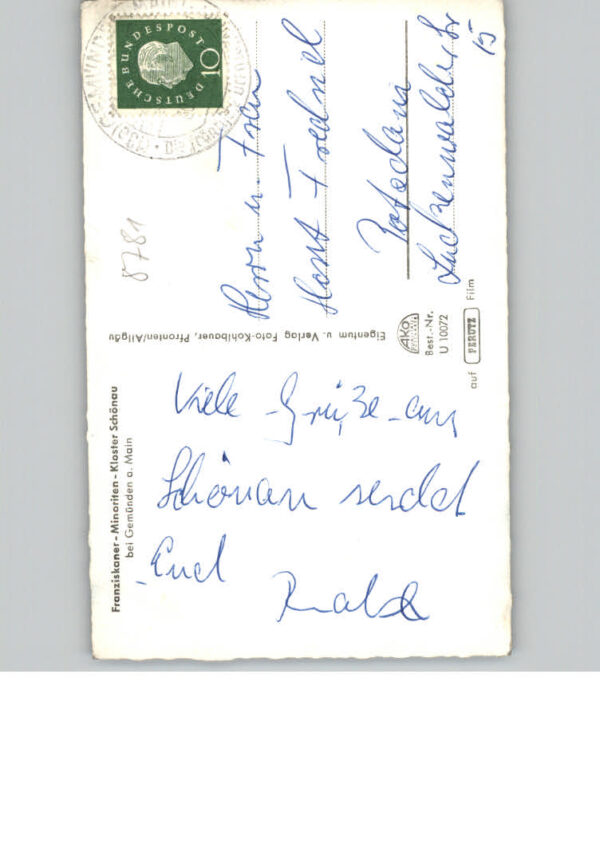 Franziskaner-Minoriten-Kloster Schönau
bei Gemünden a. Main
Viele Grüße aus
Schönau sendet
Euch
Eigentum u. Verlag Foto-Kohlbauer, Pfronten/Allgäu
Ako
Best.-Nr.
U 10072
auf PERUTZ Film
8781
DEUTSCHE BUNDESPOST
10
Herrn u. Frau
Horst
Potsdam
Luckenwalder Str
15